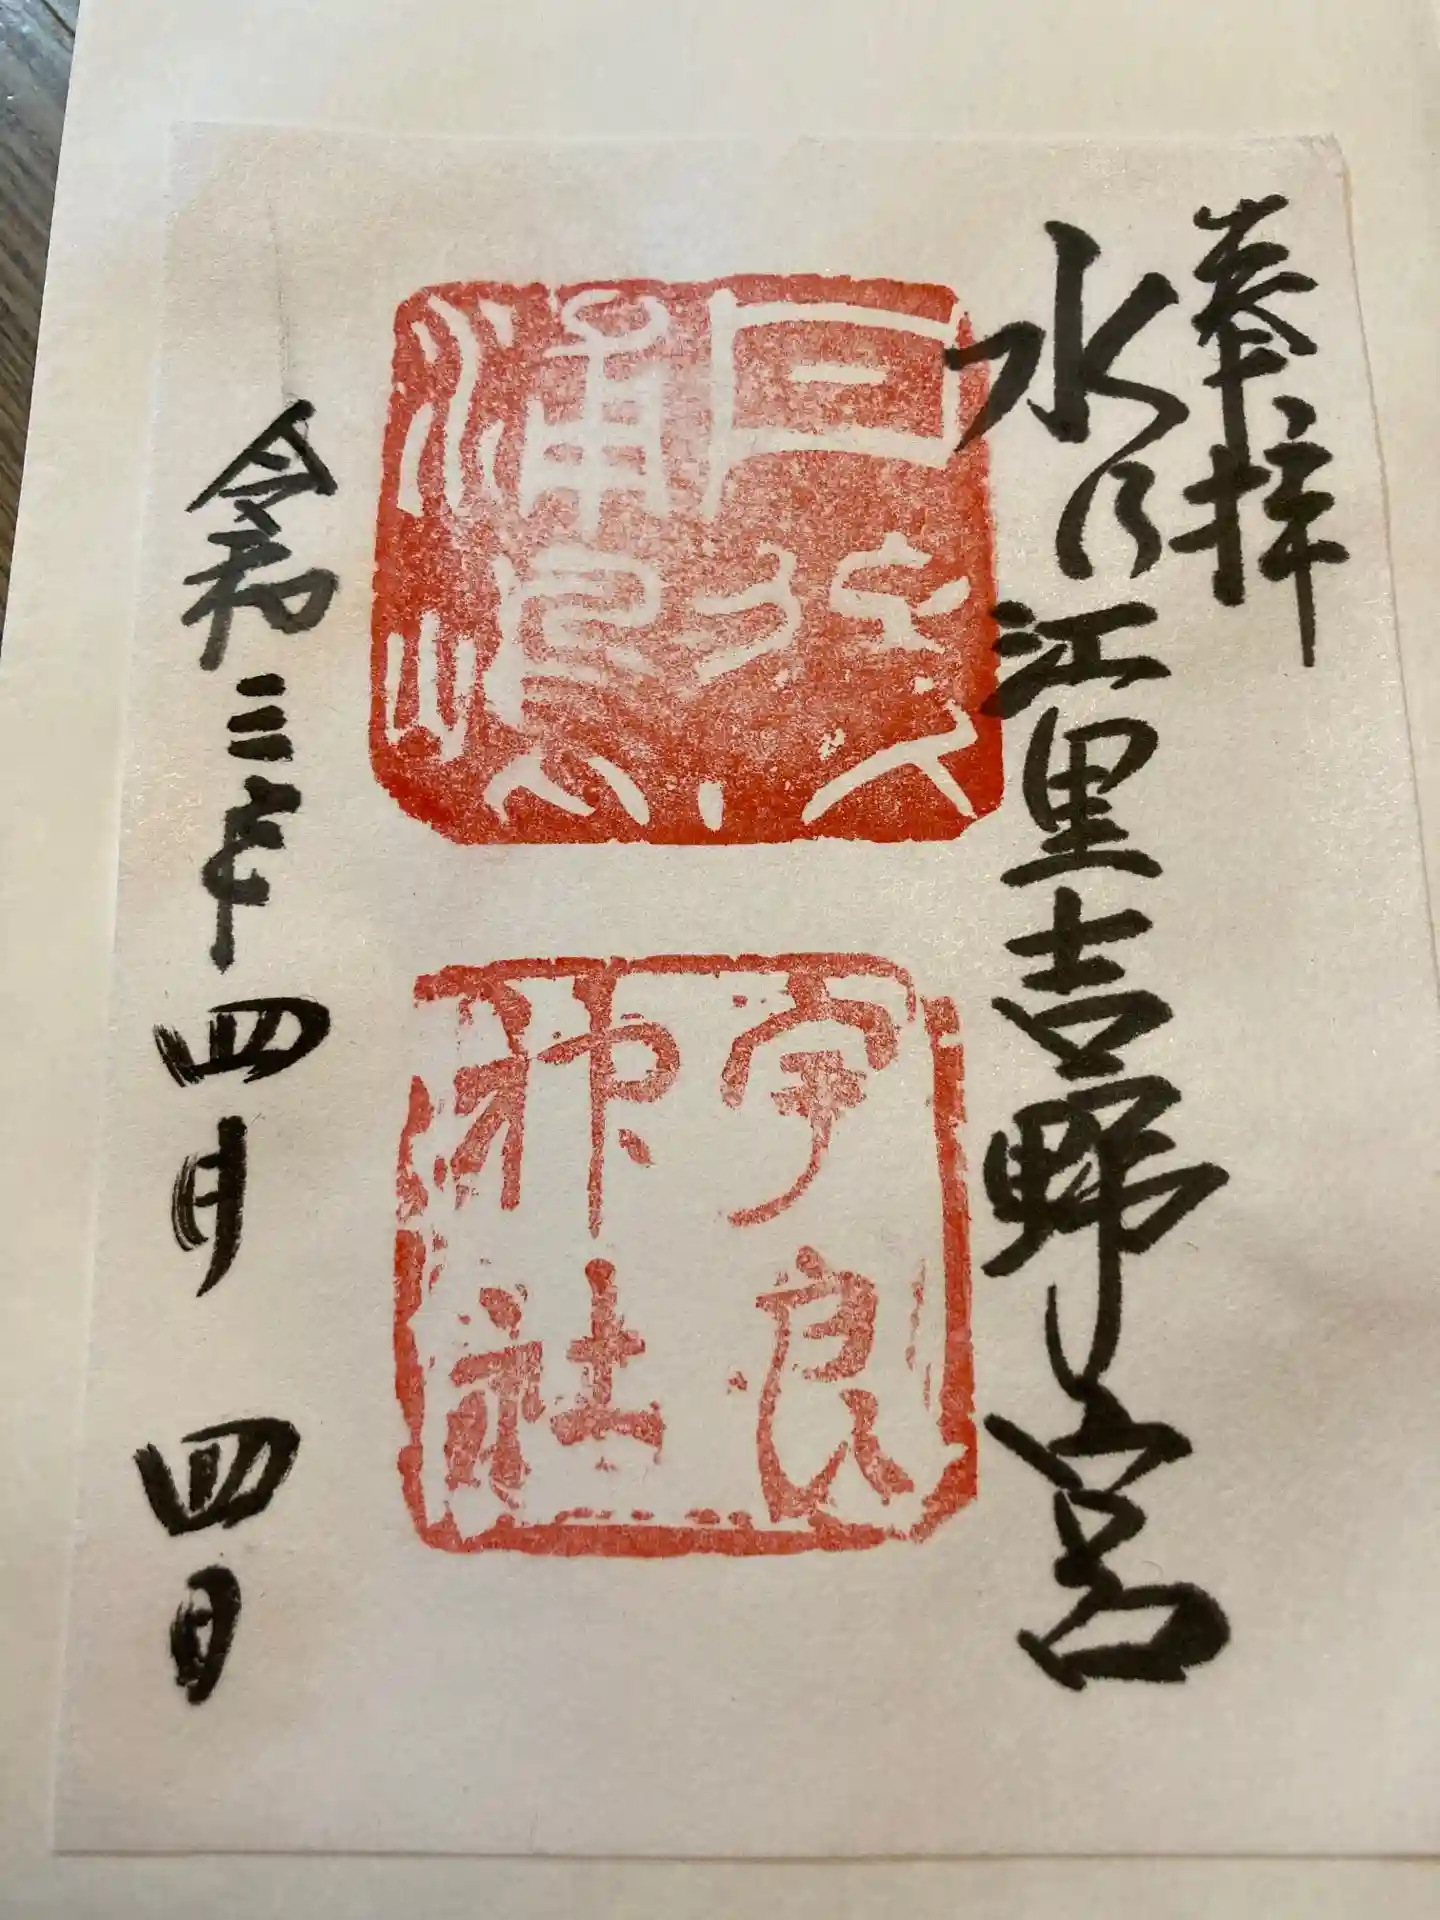 奉拝
水乃江里吉野宮
宇良
神社
令和三年四月四日